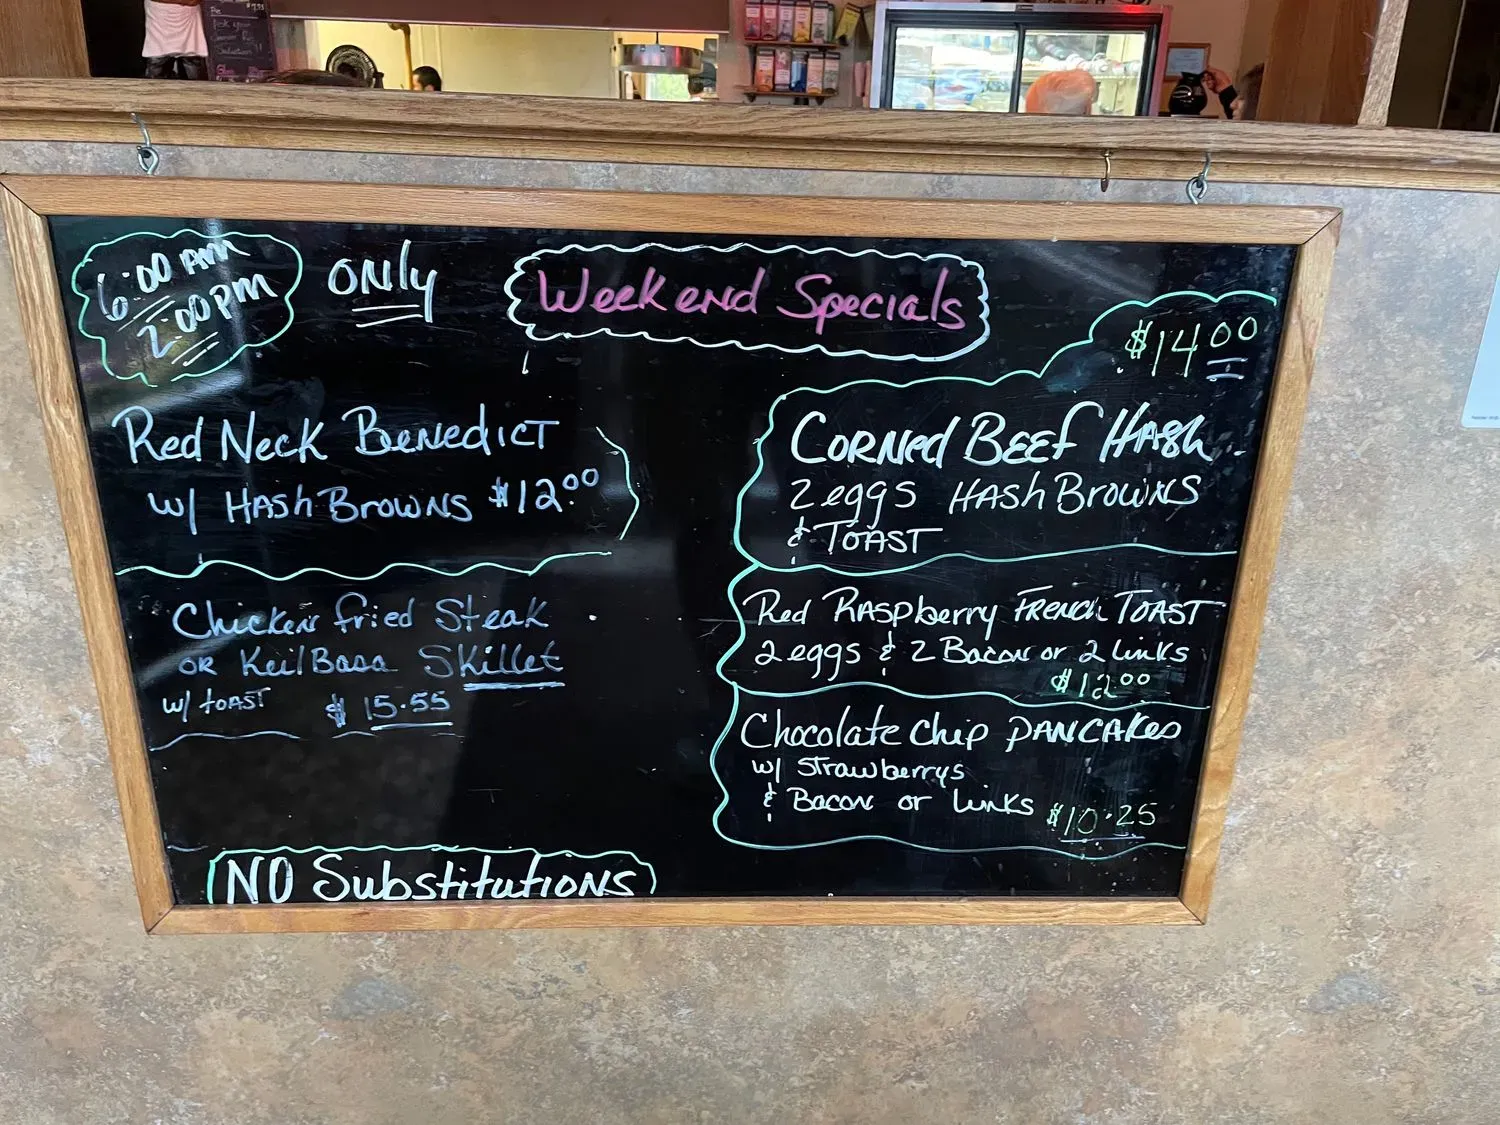 6:00 AM
2:00 PM
ONly
Weekend Specials
Red Neck Benedict
w/ Hash Browns $12.00
Chicken fried Steak
or KeilBasa Skillet
w/ toast $15.55
NO Substitutions
$14.00
Corned Beef Hash
2 eggs Hash Browns
& Toast
Red Raspberry French Toast
2 eggs & 2 Bacon or 2 links
$12.00
Chocolate Chip Pancakes
w/ Strawberrys
& Bacon or Links $10.25